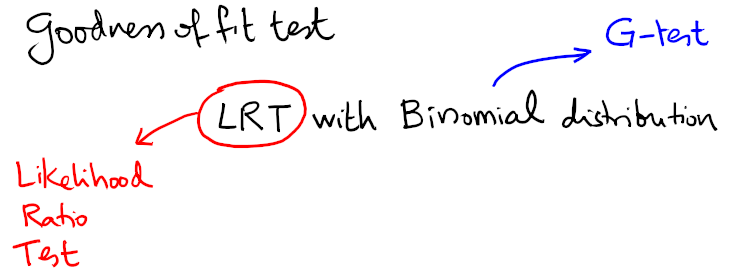 Goodness of fit test
G-test
LRT with Binomial distribution
Likelihood
Ratio
Test